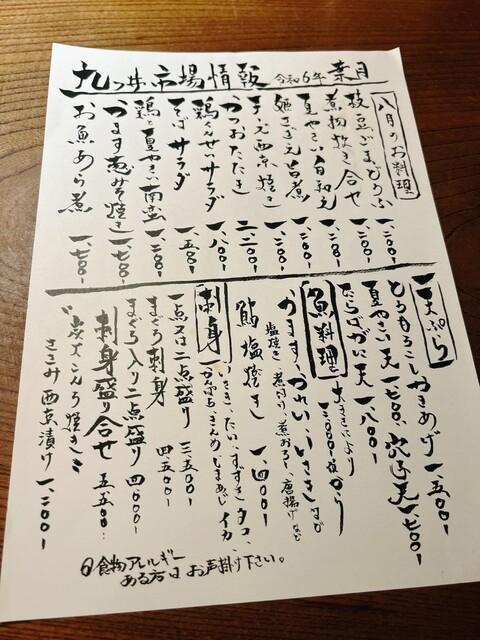 九つ井市場情報 令和6年 葉月
八月のお料理
枝豆ごまどうふ 一、二〇〇
煮物炊き合せ 一、二〇〇
夏やさい白和え 一、二〇〇
姫さざえ旨煮 一、二〇〇
西京焼き 二、二〇〇
かつおたたき 一、八〇〇
鶏くんせいサラダ 一、八〇〇
そばサラダ 一、五〇〇
鶏と夏やさい南蛮 一、二〇〇
かます南みそ焼き 一、七〇〇
お魚あら煮 一、七〇〇
天ぷら
とうもろこしかきあげ 一、五〇〇
夏やさい天 一、七〇〇 穴子天 一、七〇〇
たらばがに天 一、八〇〇
魚料理 大きさにより 三、〇〇〇位から
かます、かれい、いさきなど
塩焼き、煮付け、煮おろし、唐揚げなど
鮎塩焼き 一、四〇〇
刺身 いさき、たい、すずき、タコ、
かんぱち、さざえ、しまあじ、イカ
一点又は二点盛り 三、五〇〇
まぐろ刺身 四、五〇〇
まぐろ入り二点盛り 四、〇〇〇
刺身盛り合せ 五、五〇〇
炭火こんろ焼き
ささみ西京漬け 一、二〇〇
食物アレルギー
ある方は お声掛け下さい。